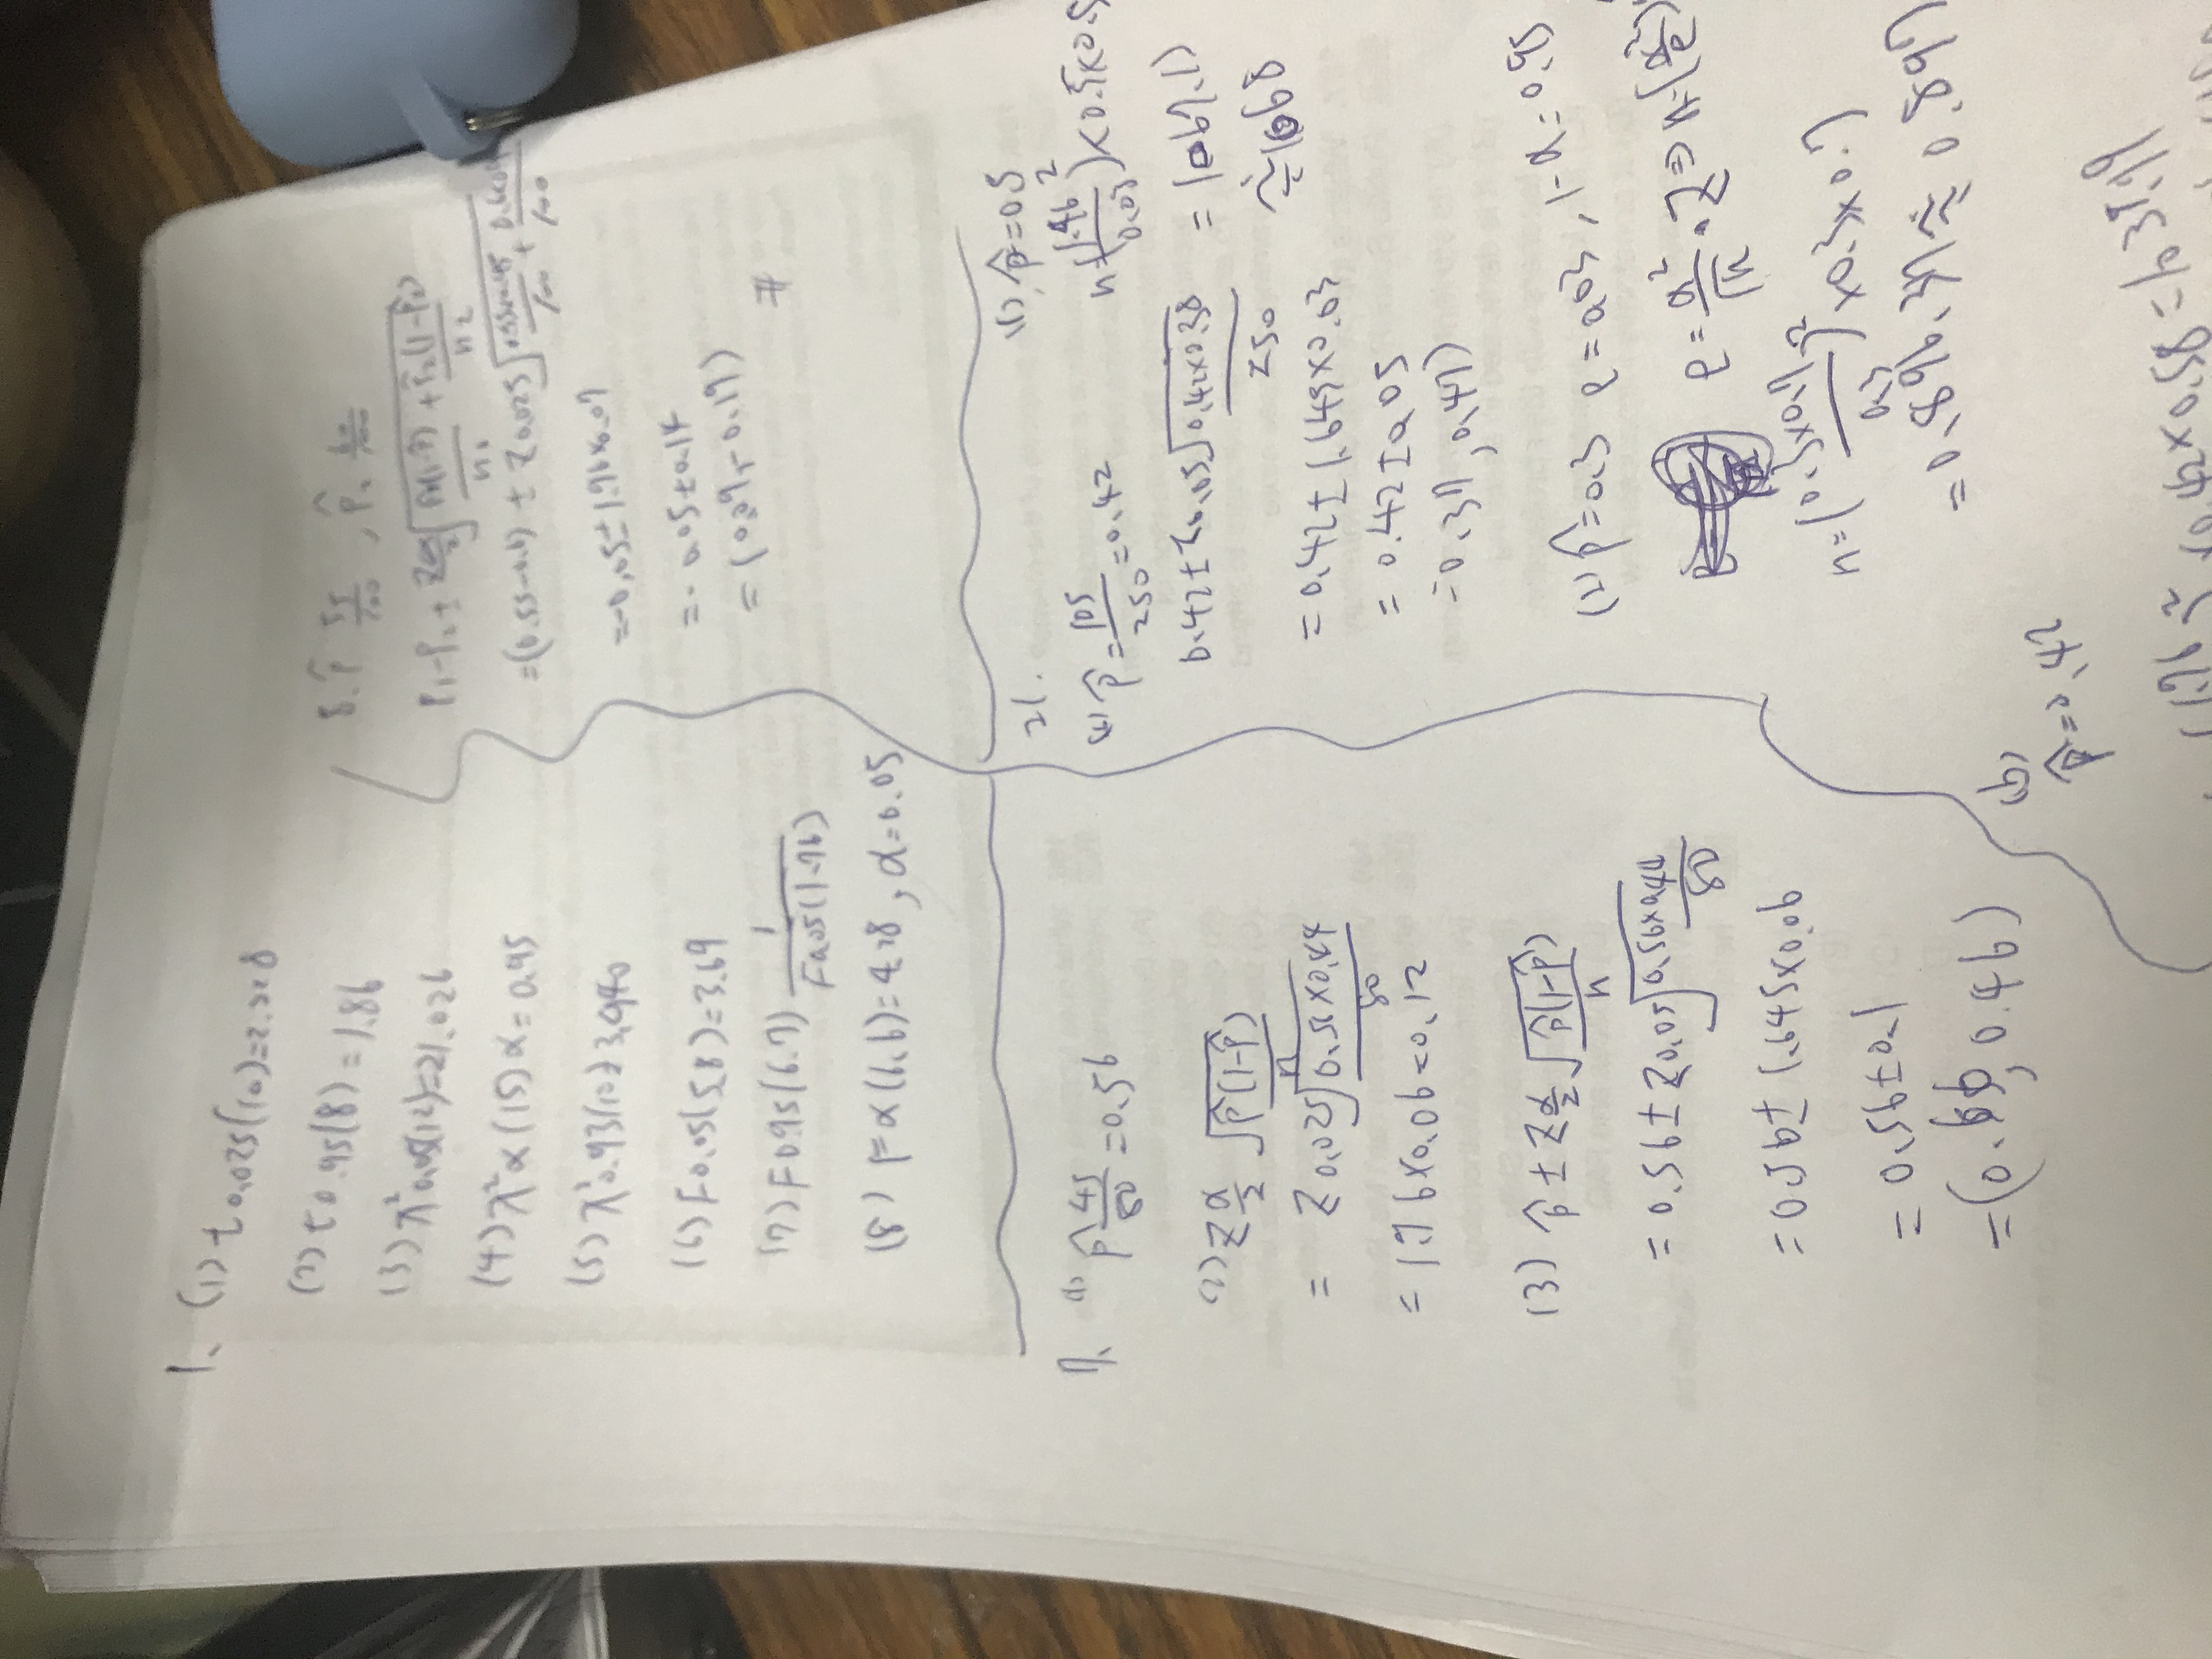 1. (1) t0.025(10)=2.228
(2) t0.95(8)=1.86
(3) χ²0.05(12)=21.026
(4) χ²α(15) α=0.95
(5) χ²0.93(10)=3.940
(6) F0.05(5,8)=3.69
(7) F0.95(6.7) 1/F0.05(1.76)
(8) Fα(6,6)=4.28, α=0.05
8. p̂ 55/100, p̂. 60/100
P1-P2 ± Zα/2 √(p̂1(1-p̂)/n1 + p̂2(1-p̂2)/n2)
=(0.55-0.6) ± Z0.025 √(0.55×0.45/100 +
=-0.05±1.96×0.07
=-0.05±0.14
=(0.09,-0.19)
#
7. (1) p̂ 45/80 =0.56
(2) Zα/2 √(p̂(1-p̂)/n)
= Z0.025 √(0.56×0.44/80)
=1.96×0.06=0.12
(3) p̂ ± Zα/2 √(p̂(1-p̂)/n)
=0.56±Z0.05 √(0.56×0.44/80)
=0.56±1.645×0.06
=0.56±0.1
=(0.66, 0.46)
21.
p̂=105/250=0.42
0.42±Z0.05 √(0.42×0.58/250)
=0.42±1.645×0.03
=0.42±0.05
=0.37, 0.47)
p̂=0.5
n=(1.96/0.03)²×0.5×0.5
=1067.1)
≈1068
(2) p̂=0.3 e=0.03, 1-α=0.95
e=α²/√n · Z ⇒
n=(0.3×0.7/0.3)²×0.3×0.7
=0.896.37≈0.897
(b)
p̂=0.42
×0.42×0.58=